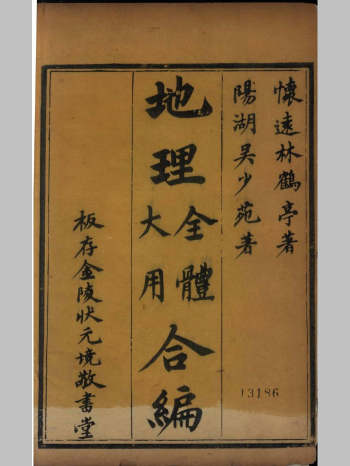 懷遠林鶴亭著
陽湖吳少苑著
地理全體大用合編
板存金陵狀元境敬書堂
13186